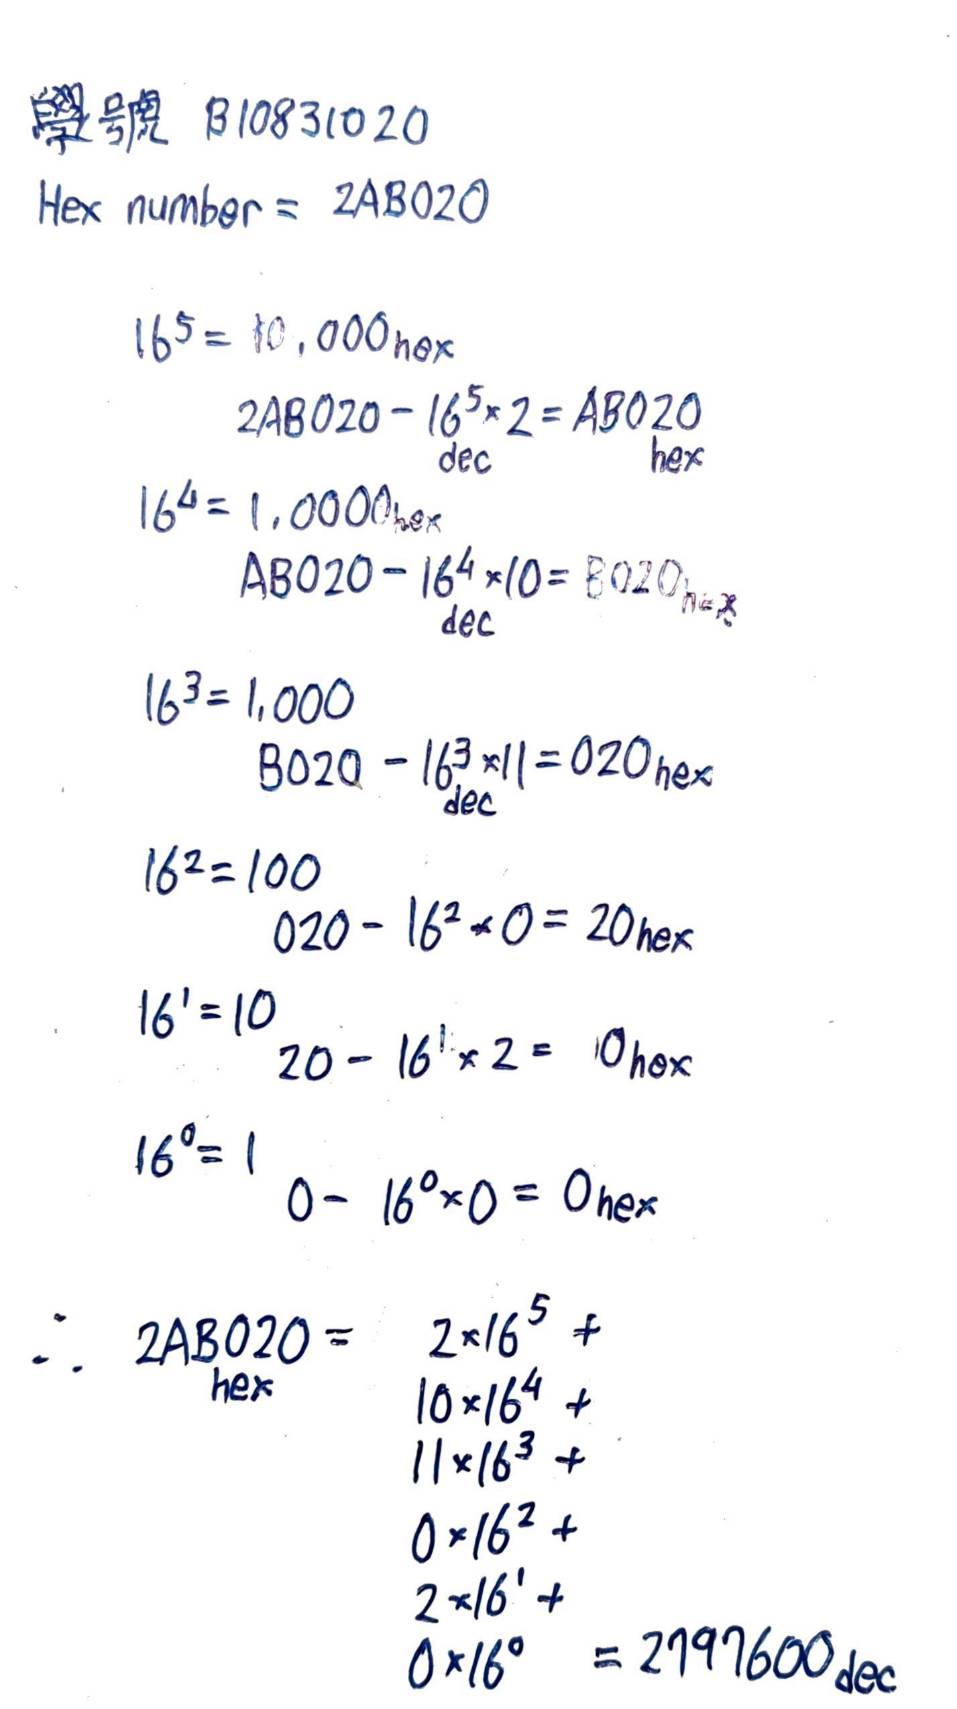 學號 B10831020
Hex number = 2AB020
16⁵ = 10,000hex
2AB020 - 16⁵ × 2 = AB020
dec hex
16⁴ = 1,0000hex
AB020 - 16⁴ × 10 = B020hex
dec
16³ = 1,000
B020 - 16³ × 11 = 020hex
dec
16² = 100
020 - 16² × 0 = 20hex
16¹ = 10
20 - 16¹ × 2 = 0hex
16⁰ = 1
0 - 16⁰ × 0 = 0hex
∴ 2AB020 = 2 × 16⁵ +
hex
10 × 16⁴ +
11 × 16³ +
0 × 16² +
2 × 16¹ +
0 × 16⁰ = 2797600dec